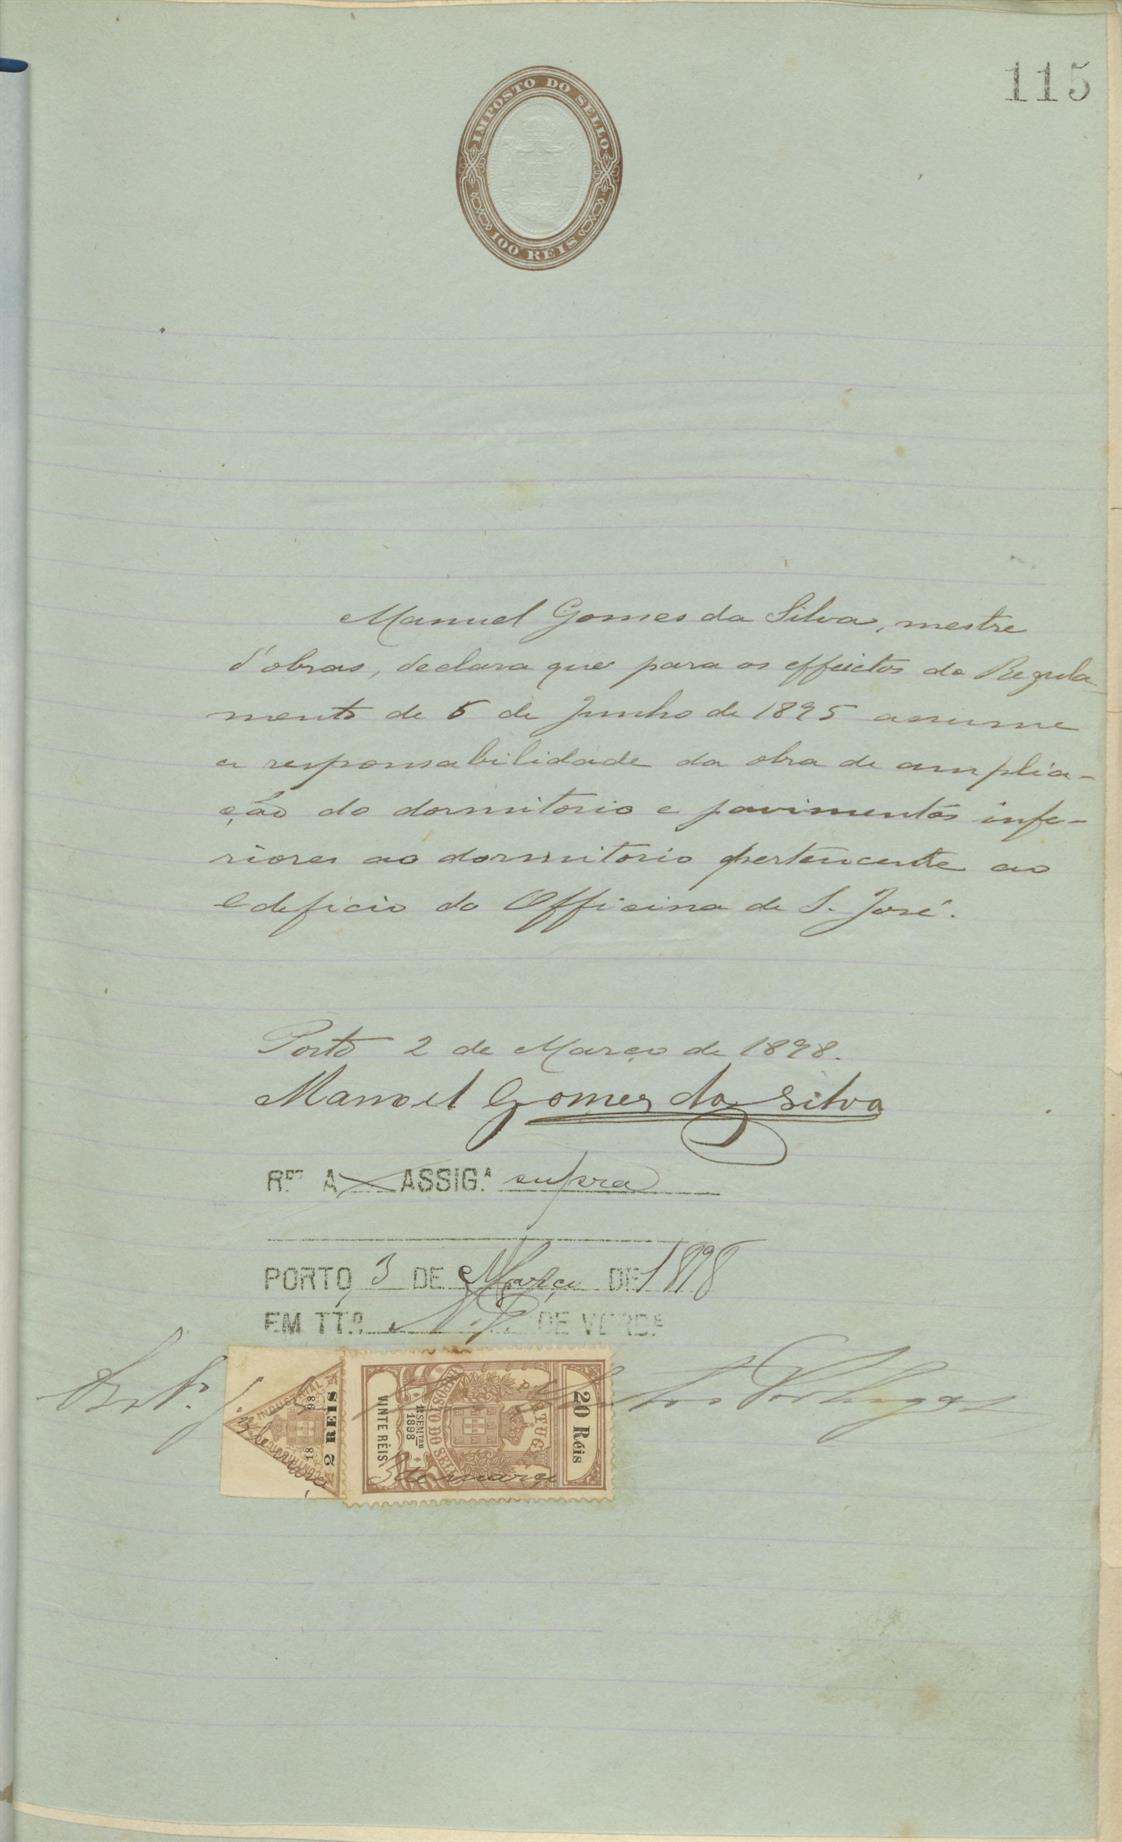 115
IMPOSTO DO SELLO
100 REIS
Manuel Gomes da Silva, mestre
d'obras, declara que para os effeitos do Regula-
mento de 6 de Junho de 1895 assume
a responsabilidade da obra de amplia-
ção do dormitorio e pavimentos infe-
riores ao dormitorio pertencente ao
edificio da Officina de S. José.
Porto 2 de Março de 1898.
Manoel Gomes da Silva
R.ço A ASSIG.A supra
PORTO, 3 DE Março DE 1898
EM TT.º DE VERD.E
INDUSTRIAL
2 REIS
PORTUGAL
IMPOSTO DO SELLO
1º SEM.TRE
1898
VINTE RÉIS
20 Réis
3 de março